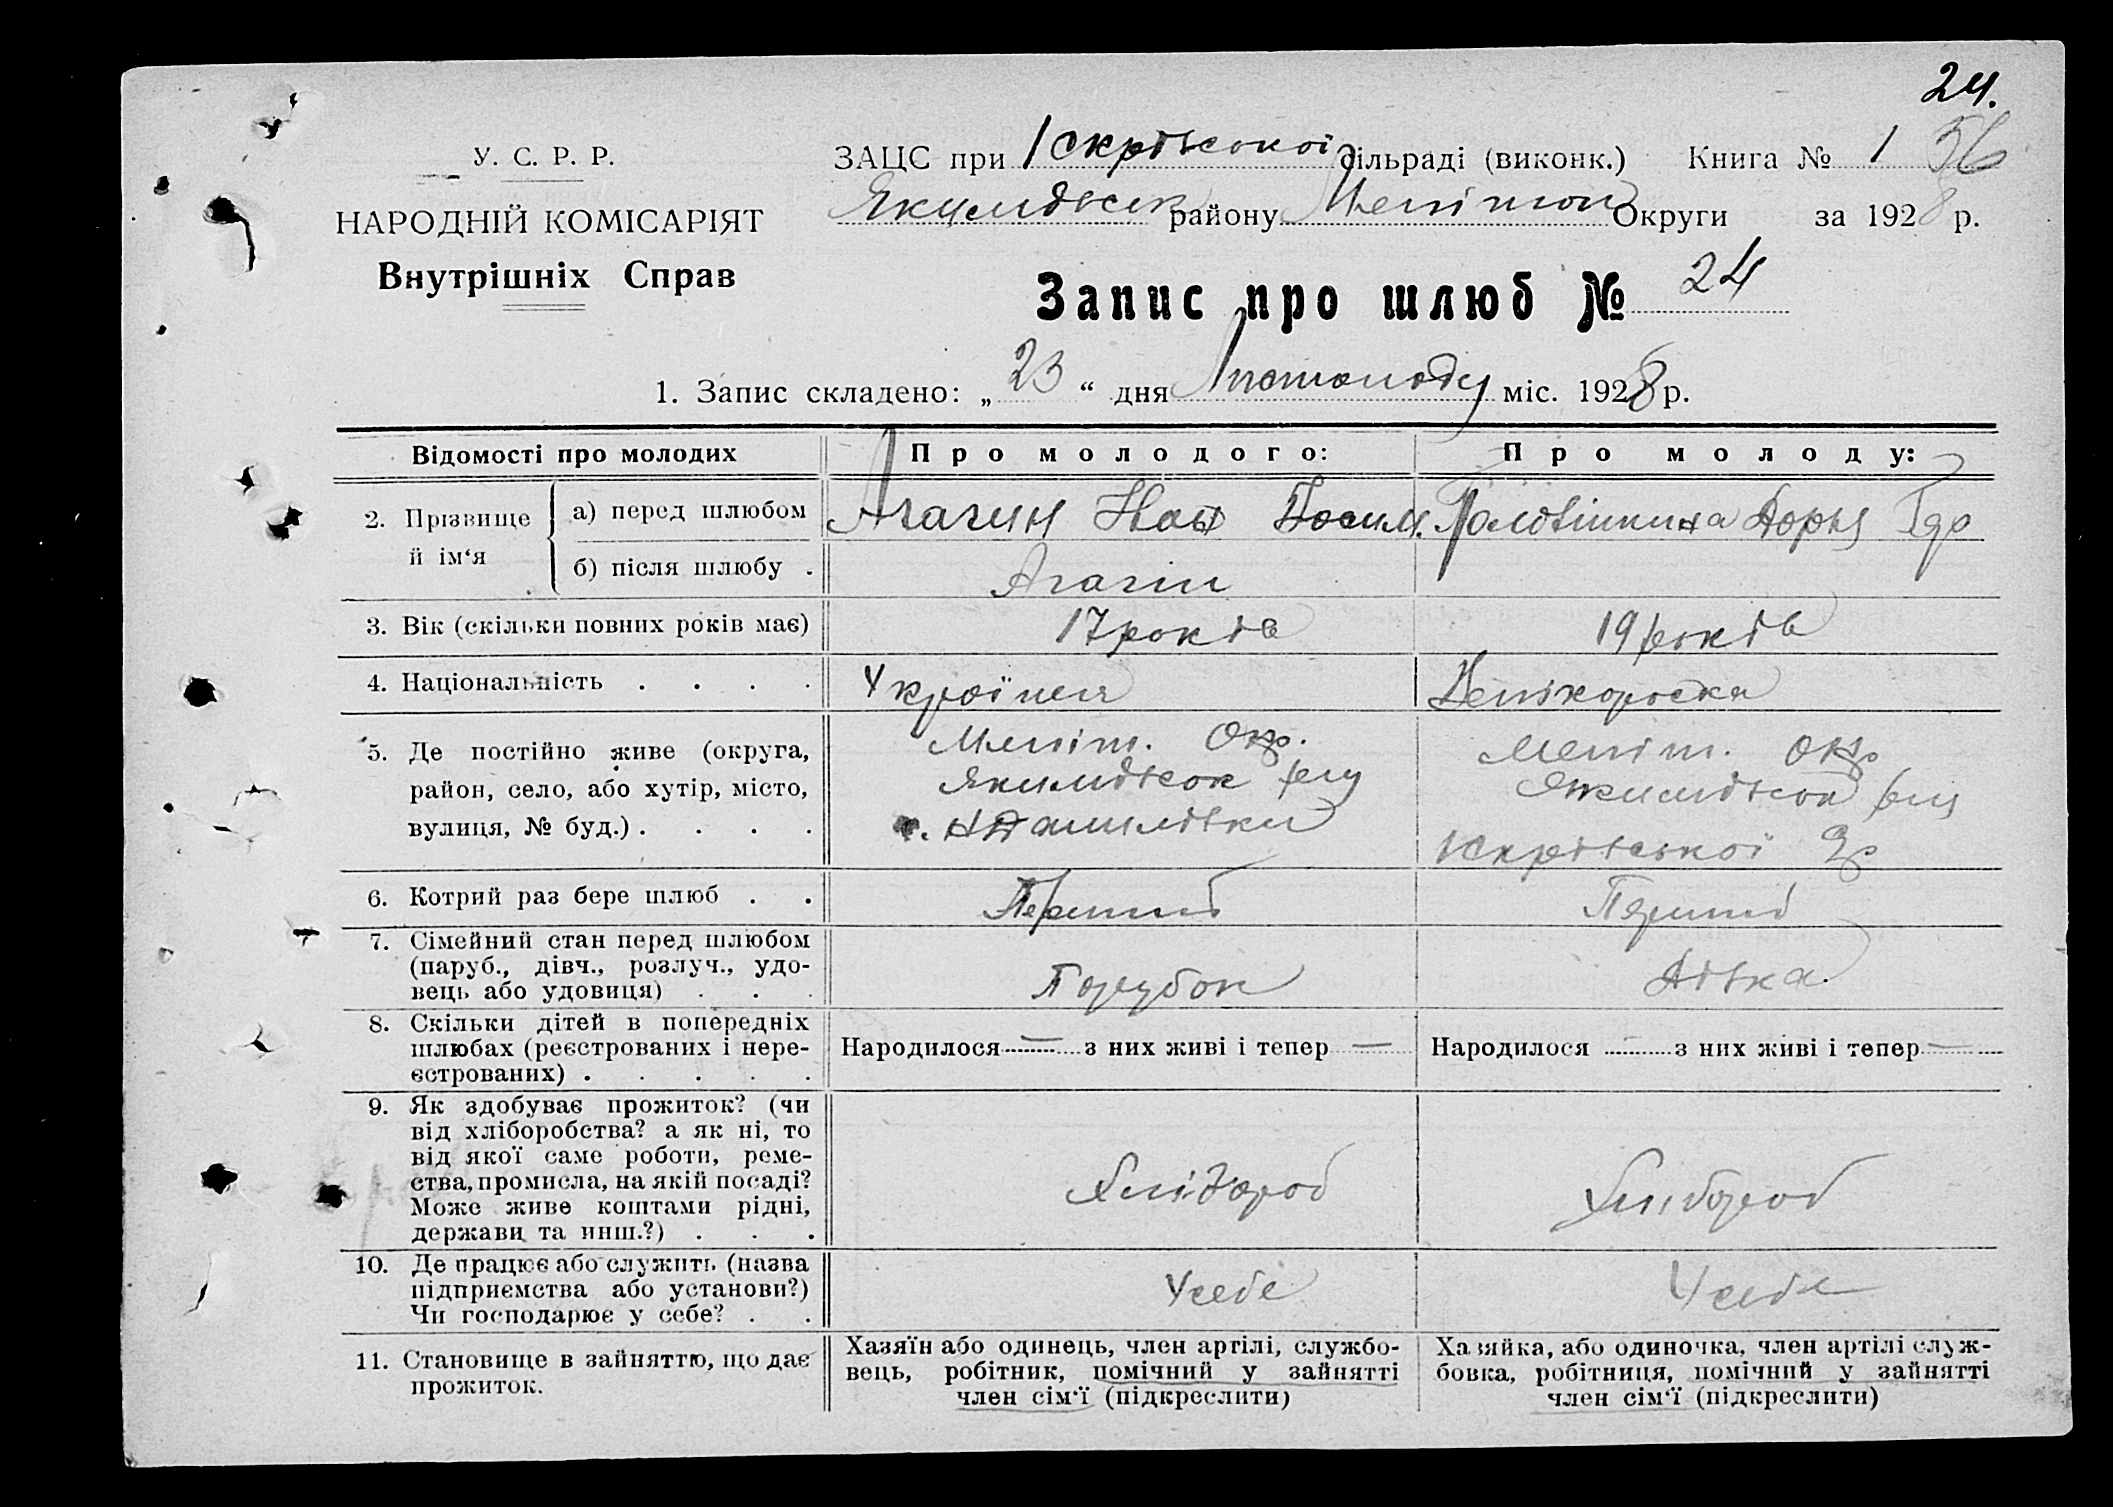 24.
У. С. Р. Р.
ЗАЦС при Іскрівської сільраді (виконк.) Книга № 1 56
НАРОДНІЙ КОМІСАРІЯТ
Якимівськ району Меліт Округи за 1928 р.
Внутрішніх Справ
Запис про шлюб № 24
1. Запис складено: „ 23 “ дня Листопаду міс. 1928 р.
Відомості про молодих
Про молодого:
Про молоду:
2. Прізвище й ім‘я
а) перед шлюбом
Агагин
Дорья
б) після шлюбу .
Агагін
3. Вік (скільки повних років має)
17 років
19 років
4. Національність . . . .
Україпец
Велікороска
5. Де постійно живе (округа,
район, село, або хутір, місто,
вулиця, № буд.) . . . .
Меліт. Окр.
Якимівсок р-ну
Меліт. Окр
Якимівсок р-ну
Іскрівської
6. Котрий раз бере шлюб . .
Перший
Перший
7. Сімейний стан перед шлюбом
(паруб., дівч., розлуч., удо-
вець або удовиця) . . .
Парубок
Дівка.
8. Скільки дітей в попередніх
шлюбах (реєстрованих і нере-
єстрованих) . . . . .
Народилося — з них живі і тепер —
Народилося — з них живі і тепер —
9. Як здобуває прожиток? (чи
від хліборобства? а як ні, то
від якої саме роботи, реме-
ства, промисла, на якій посаді?
Може живе коштами рідні,
держави та инш.?) . . .
Хлібороб
Хлібороб
10. Де працює або служить (назва
підприємства або установи?)
Чи господарює у себе? . .
У себе
У себе
11. Становище в зайняттю, що дає
прожиток.
Хазяїн або одинець, член артілі, службо-
вець, робітник, помічний у зайнятті
член сім‘ї (підкреслити)
Хазяйка, або одиночка, член артілі служ-
бовка, робітниця, помічний у зайнятті
член сім‘ї (підкреслити)